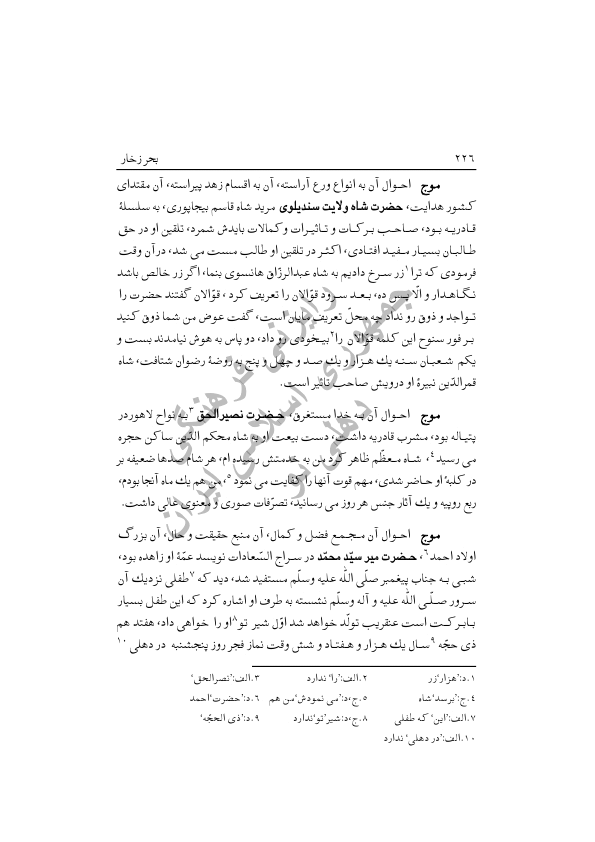 ۲۲۶ بحر زخار
موج احوال آن به انواع ورع آراسته، آن به اقسام زهد پیراسته، آن مقتدای
کشور هدایت، حضرت شاه ولایت سندیلوی مرید شاه قاسم بیجاپوری، به سلسلهٔ
قادریه بود، صاحب برکات و تاثیرات و کمالات بایدش شمرد، تلقین او در حق
طالبان بسیار مفید افتادی، اکثر در تلقین او طالب مست می شد، در آن وقت
فرمودی که ترا ۱ زر سرخ دادیم به شاه عبدالرزاق هانسوی بنما، اگر زر خالص باشد
نگاهدار و الّا پس ده، بعد سرود قوّالان را تعریف کرد، قوّالان گفتند حضرت را
تواجد و ذوق رو نداد چه محلّ تعریف مایان است، گفت عوض من شما ذوق کنید
بر فور سنوح این کلمه قوّالان را ۲ بیخودی رو داد، دو پاس به هوش نیامدند بست و
یکم شعبان سنه یك هزار و یك صد و چهل و پنج به روضهٔ رضوان شتافت، شاه
قمرالدّین نبیرهٔ او درویش صاحب تاثیر است.
موج احوال آن به خدا مستغرق، حضرت نصیرالحق ۳ به نواح لاهور در
پتیاله بود، مشرب قادریه داشت، دست بیعت او به شاه محکم الدّین ساکن حجره
می رسید ۴، شاه معظّم ظاهر کرد من به خدمتش رسیده ام، هر شام صدها ضعیفه بر
در کلبهٔ او حاضر شدی، مهم قوت آنها را کفایت می نمود ۵، من هم یك ماه آنجا بودم،
ربع روپیه و یك آثار جنس هر روز می رسانید، تصرّفات صوری و معنوی عالی داشت.
موج احوال آن مجمع فضل و کمال، آن منبع حقیقت و حال، آن بزرگ
اولاد احمد ۶، حضرت میر سیّد محمّد در سراج السّعادات نویسد عمّهٔ او زاهده بود،
شبی به جناب پیغمبر صلّی اللّه علیه وسلّم مستفید شد، دید که ۷ طفلی نزدیك آن
سرور صلّی اللّه علیه و آله وسلّم نشسته به طرف او اشاره کرد که این طفل بسیار
بابرکت است عنقریب تولّد خواهد شد اوّل شیر تو ۸ او را خواهی داد، هفتد هم
ذی حجّه ۹ سال یك هزار و هفتاد و شش وقت نماز فجر روز پنجشنبه در دهلی ۱۰
۱. د: 'هزار' زر ۲. الف: 'را' ندارد ۳. الف: 'نصرالحق'
۴. ج: 'برسد' شاه ۵. ج، د: 'می نمودش' من هم ۶. د: 'حضرت' احمد
۷. الف: 'این' که طفلی ۸. ج، د: شیر 'تو' ندارد ۹. د: 'ذی الحجّه'
۱۰. الف: 'در دهلی' ندارد
جمهوری اسلامی ایران
رایزنی فرهنگی
دهلی نو